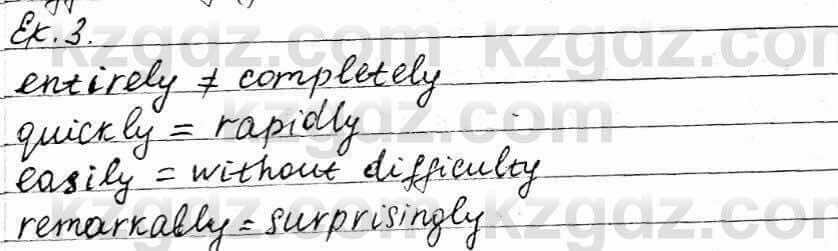 Ex. 3.
entirely ≠ completely
quickly = rapidly
easily = without difficulty
remarkably = surprisingly
kzgdz.com kzgdz.com
kzgdz.com
kzgdz.com kzgdz.com